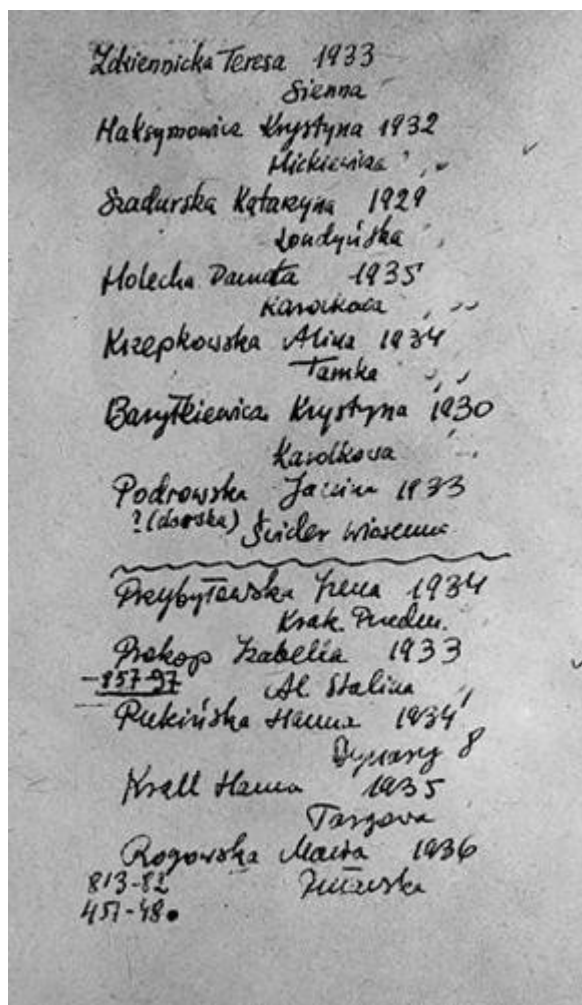 Zdziennicka Teresa 1933
Sienna
Maksymowicz Krystyna 1932
Mickiewicza
Szadurska Katarzyna 1929
Londyńska
Molecha Danuta 1935
Karolkowa
Krzepkowska Alina 1934
Tamka
Baryłkiewicz Krystyna 1930
Karolkowa
Podrowska Janina 1933
?(dowska) Świder Wiosenna
Przybyłowska Irena 1934
Krak. Przedm.
Prokop Izabella 1933
-857-97 Al Stalina
Rukińska Hanna 1934
Dynasy 8
Krall Hanna 1935
Targowa
Rogowska Maria 1936
813-82
451-48